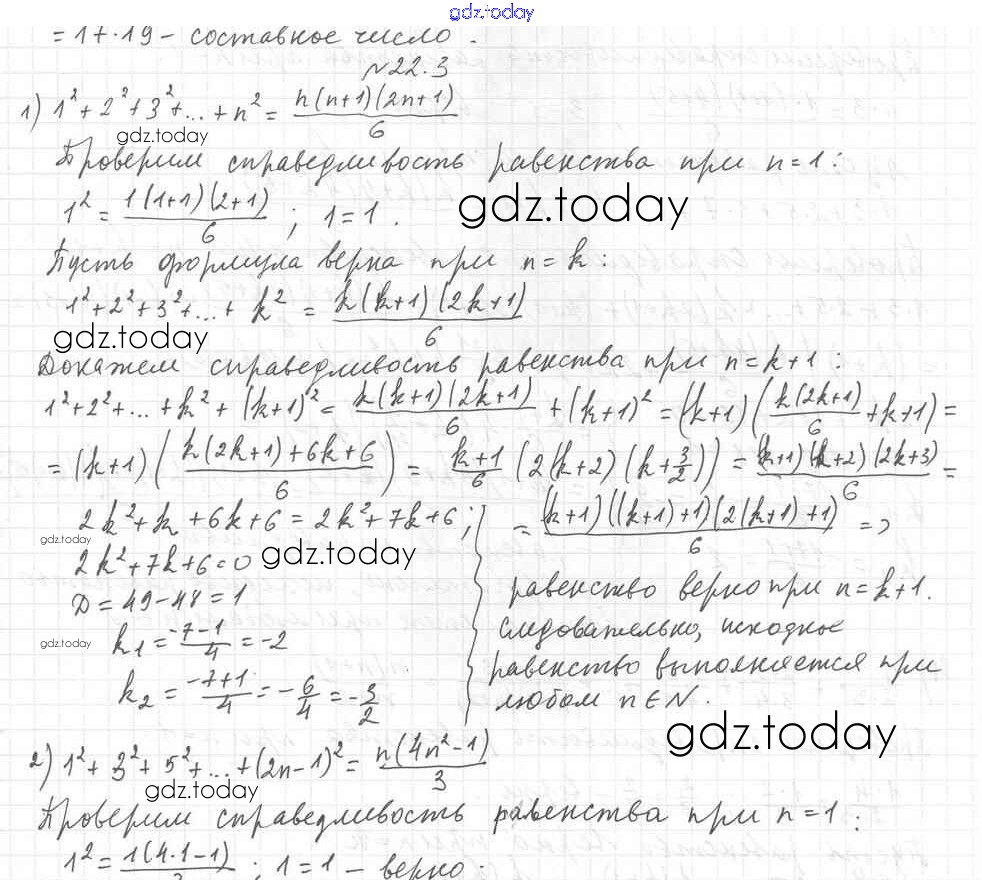 gdz.today
= 17·19 – составное число.
№22.3
1) 1² + 2² + 3² + ... + n² = n(n+1)(2n+1)/6
gdz.today
Проверим справедливость равенства при n=1:
1² = 1(1+1)(2+1)/6 ; 1=1. gdz.today
Пусть формула верна при n=k:
1²+2²+3²+...+k² = k(k+1)(2k+1)/6
gdz.today
Докажем справедливость равенства при n=k+1:
1²+2²+...+k²+(k+1)² = k(k+1)(2k+1)/6 + (k+1)² = (k+1)(k(2k+1)/6 + k+1) =
= (k+1)((k(2k+1)+6k+6)/6) = (k+1)/6 (2(k+2)(k+3/2)) = (k+1)(k+2)(2k+3)/6 =
2k²+k+6k+6 = 2k²+7k+6;
gdz.today
2k²+7k+6=0 gdz.today
D = 49-48 = 1
gdz.today
k₁ = (-7-1)/4 = -2
k₂ = (-7+1)/4 = -6/4 = -3/2
= (k+1)((k+1)+1)(2(k+1)+1)/6 =>
равенство верно при n=k+1.
Следовательно, исходное
равенство выполняется при
любом n∈N.
gdz.today
2) 1²+3²+5²+...+(2n-1)² = n(4n²-1)/3
gdz.today
Проверим справедливость равенства при n=1:
gdz.today
1² = 1(4·1-1)/3 ; 1=1 – верно;